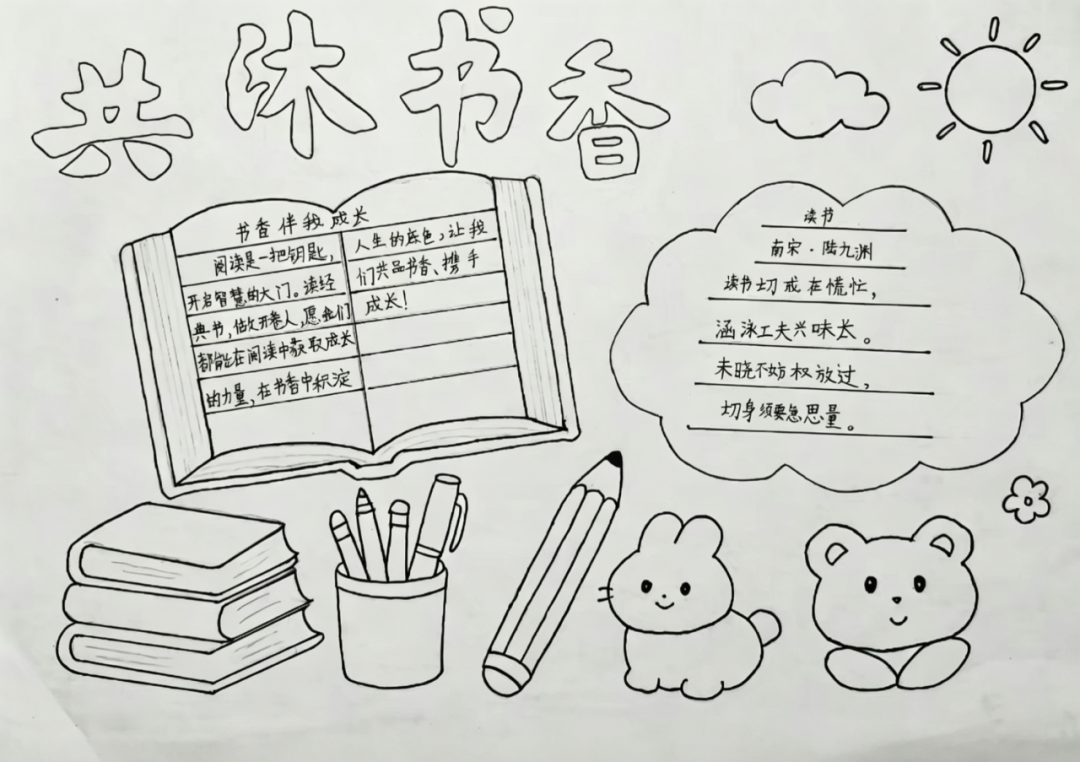 共沐书香
书香伴我成长
阅读是一把钥匙，
开启智慧的大门。读经
典书，做文开卷人，愿我们
都能在阅读中获取成长
的力量，在书香中积淀
人生的底色，让我
们共品书香、携手
成长！
读书
南宋·陆九渊
读书切戒在慌忙，
涵泳工夫兴味长。
未晓不妨权放过，
切身须要急思量。